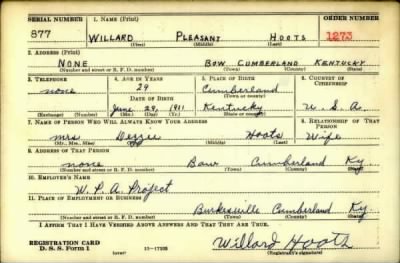 SERIAL NUMBER 1. NAME (Print) ORDER NUMBER
877 WILLARD PLEASANT HOOTS 1273
(First) (Middle) (Last)
2. ADDRESS (Print)
NONE BOW CUMBERLAND KENTUCKY
(Number and street or R. F. D. number) (Town) (County) (State)
3. TELEPHONE 4. AGE IN YEARS 5. PLACE OF BIRTH 6. COUNTRY OF CITIZENSHIP
none 29 Cumberland
(Town or county)
DATE OF BIRTH
June 29, 1911 Kentucky U.S.A.
(Mo.) (Day) (Yr.) (State or country)
7. NAME OF PERSON WHO WILL ALWAYS KNOW YOUR ADDRESS 8. RELATIONSHIP OF THAT PERSON
mrs Hoots Wife
(Mr., Mrs., Miss) (First) (Middle) (Last)
9. ADDRESS OF THAT PERSON
none Bow Cumberland Ky
(Number and street or R. F. D. number) (Town) (County) (State)
10. EMPLOYER'S NAME
W.P.A. Project
11. PLACE OF EMPLOYMENT OR BUSINESS
Burkesville Cumberland Ky.
(Number and street or R. F. D. number) (Town) (County) (State)
I AFFIRM THAT I HAVE VERIFIED ABOVE ANSWERS AND THAT THEY ARE TRUE.
REGISTRATION CARD
D. S. S. Form 1 (over) Willard Hoots
(Registrant's signature)